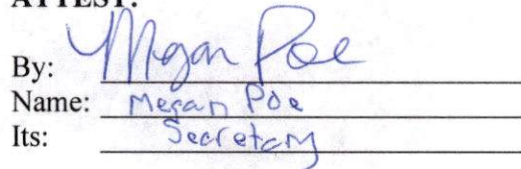 ATTEST:
By: Megan Poe
Name: Megan Poe
Its: Secretary